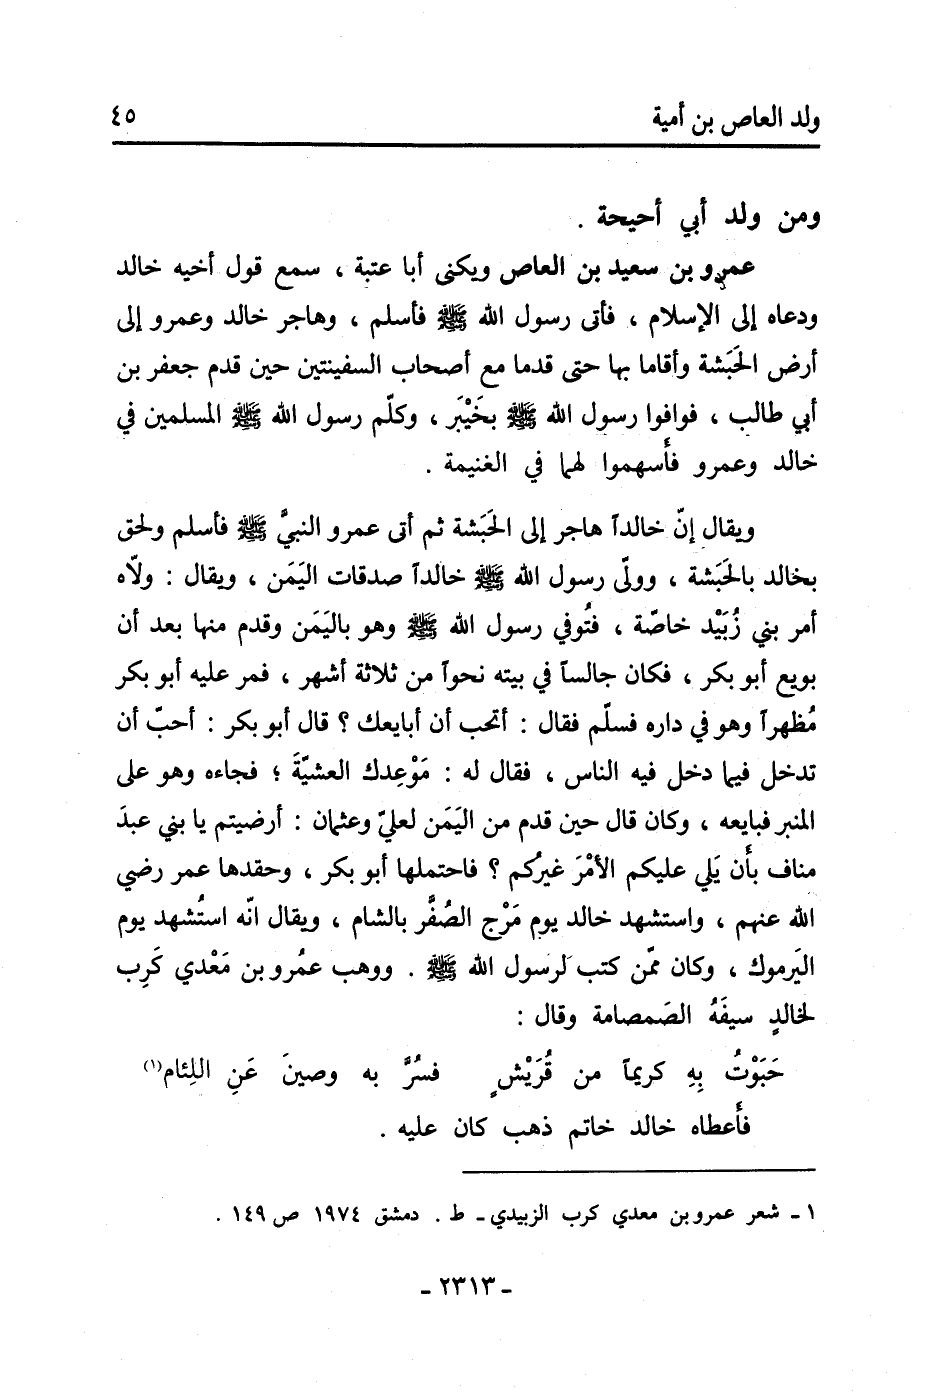 ولد العاص بن أمية ٤٥
ومن ولد أبي أحيحة .
عمرو بن سعيد بن العاص ويكنى أبا عتبة ، سمع قول أخيه خالد
ودعاه إلى الإسلام ، فأتى رسول الله ﷺ فأسلم ، وهاجر خالد وعمرو إلى
أرض الحَبَشة وأقاما بها حتى قدما مع أصحاب السفينتين حين قدم جعفر بن
أبي طالب ، فوافوا رسول الله ﷺ بخَيْبَر ، وكلّم رسول الله ﷺ المسلمين في
خالد وعمرو فأُسهموا لهما في الغنيمة .
ويقال إنّ خالداً هاجر إلى الحَبَشة ثم أتى عمرو النبيَّ ﷺ فأسلم ولحق
بخالد بالحَبَشة ، وولّى رسول الله ﷺ خالداً صدقات اليَمَن ، ويقال : ولاّه
أمر بني زُبَيْد خاصّة ، فتُوفي رسول الله ﷺ وهو باليَمَن وقدم منها بعد أن
بويع أبو بكر ، فكان جالساً في بيته نحواً من ثلاثة أشهر ، فمر عليه أبو بكر
مُظهراً وهو في داره فسلّم فقال : أتحب أن أبايعك ؟ قال أبو بكر : أحبّ أن
تدخل فيما دخل فيه الناس ، فقال له : مَوْعِدك العشيّةَ ؛ فجاءه وهو على
المنبر فبايعه ، وكان قال حين قدم من اليَمَن لعليّ وعثمان : أرضيتم يا بني عبدَ
مناف بأن يَلي عليكم الأمْرَ غيرُكم ؟ فاحتملها أبو بكر ، وحقدها عمر رضي
الله عنهم ، واستشهد خالد يوم مَرْج الصُفَّر بالشام ، ويقال انّه استُشهد يوم
اليَرموك ، وكان ممّن كتب لرسول الله ﷺ . ووهب عمُرو بن مَعْدي كَرِب
لخالدٍ سيفَهُ الصَمصامة وقال :
حَبَوْتُ بِهِ كريماً من قُرَيْشٍ فسُرَّ به وصينَ عَنِ اللِئام(١)
فأَعطاه خالد خاتم ذهب كان عليه .
١ ـ شعر عمرو بن معدي كرب الزبيدي ـ ط . دمشق ١٩٧٤ ص ١٤٩ .
ـ ٢٣١٣ ـ